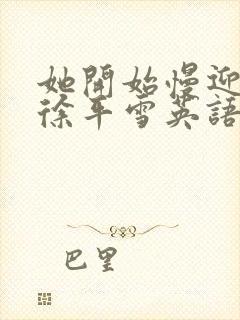 她開始慢迎
徐平雪英語
巴里